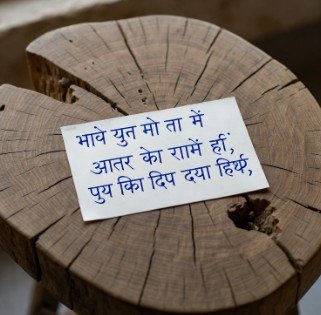 भावे युत मो ता में
आतर के रामें र्हां,
पुय कि दिप दया हिर्थ,